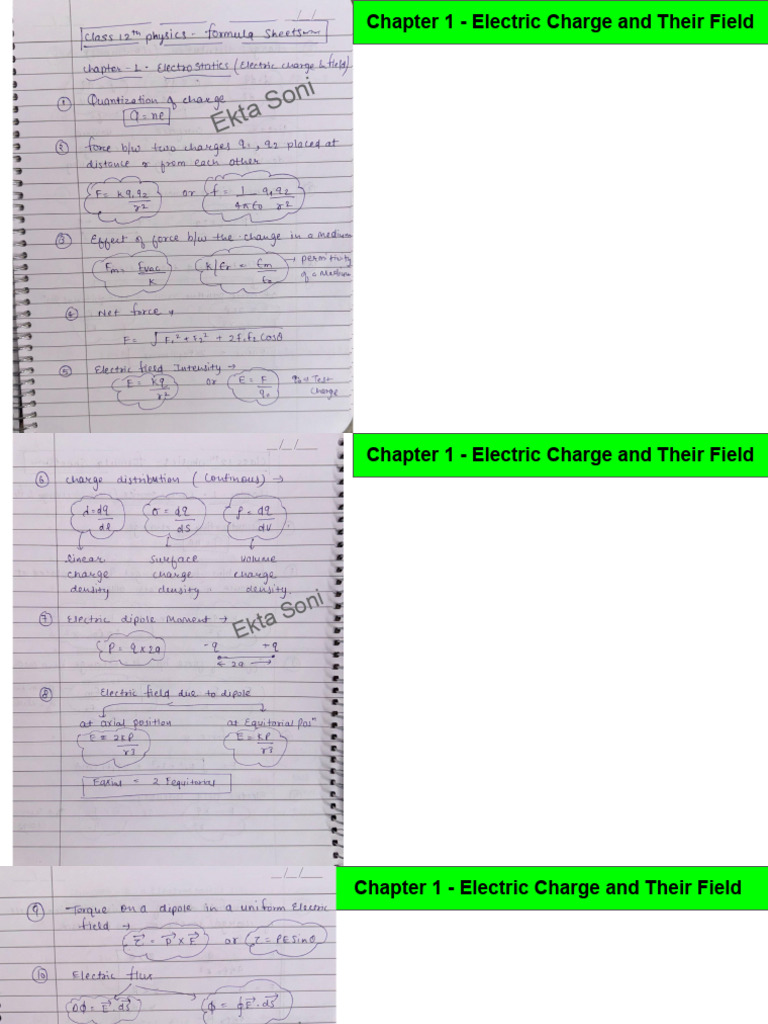 __/__/__
Chapter 1 - Electric Charge and Their Field
Class 12th physics - formula Sheets
Chapter-1 - ElectroStatics (Electric charge & field)
① Quantization of charge
Q = ne
Ekta Soni
② force b/w two charges q1, q2 placed at
distance r from each other
F = kq1q2/r2 or f = 1/4πε0 q1q2/r2
③ Effect of force b/w the charge in a medium
Fm = Fvac/K K/εr = εm/ε0 → permitivity of a Medium
④ Net force
F = √F1² + F2² + 2F1F2 Cosθ
⑤ Electric field Intensity →
E = Kq/r2 or E = F/q0 q0 → Test charge
__/__/__
Chapter 1 - Electric Charge and Their Field
⑥ charge distribution (Continous) →
λ = dq/dl σ = dq/dS ρ = dq/dV
linear surface volume
charge charge charge
density density density.
Ekta Soni
⑦ Electric dipole Moment →
P = q x 2a -q +q
← 2a →
⑧ Electric field due to dipole
at axial position at Equitorial Posn
E = 2KP/r3 E = KP/r3
Eaxial = 2 Eequitorial
__/__/__
Chapter 1 - Electric Charge and Their Field
⑨ Torque on a dipole in a uniform Electric
field →
τ⃗ = P⃗ x E⃗ or τ = PE Sinθ
⑩ Electric flux
Δϕ = E⃗.dS⃗ ϕ = ∮E⃗.dS⃗